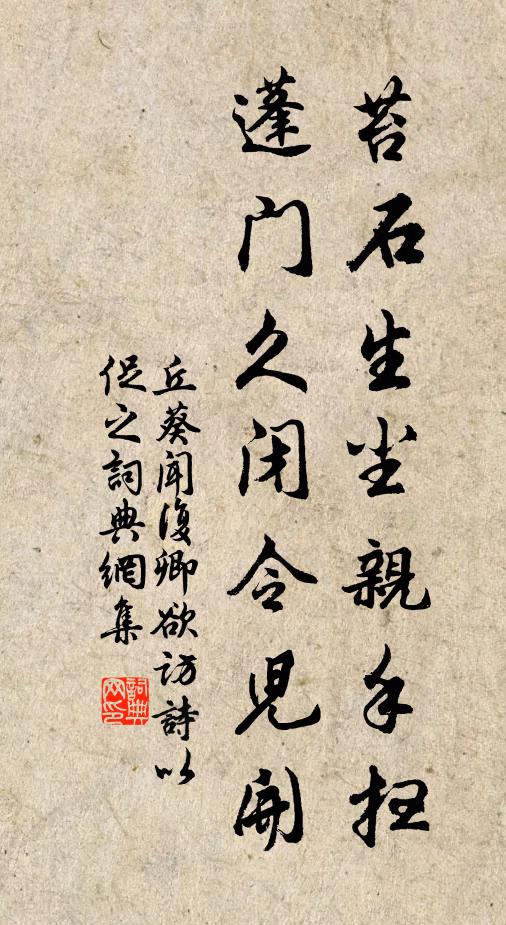 苔石生尘親手扫
蓬门久闭令児開
丘葵闻復卿欲访詩以
促之詞典網集
詞典网印